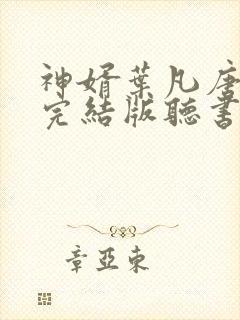 神婿葉凡唐
完結版聽書
章亞東